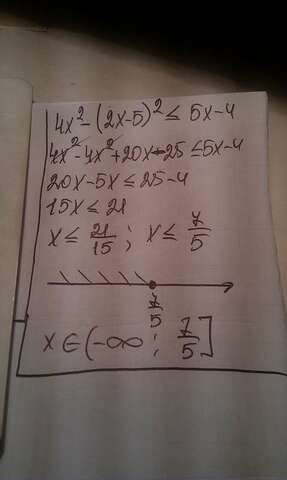 4x² - (2x-5)² ≤ 5x-4
4x² - 4x² + 20x - 25 ≤ 5x-4
20x - 5x ≤ 25 - 4
15x ≤ 21
x ≤ 21/15 ; x ≤ 7/5
7/5
x ∈ (-∞ ; 7/5]